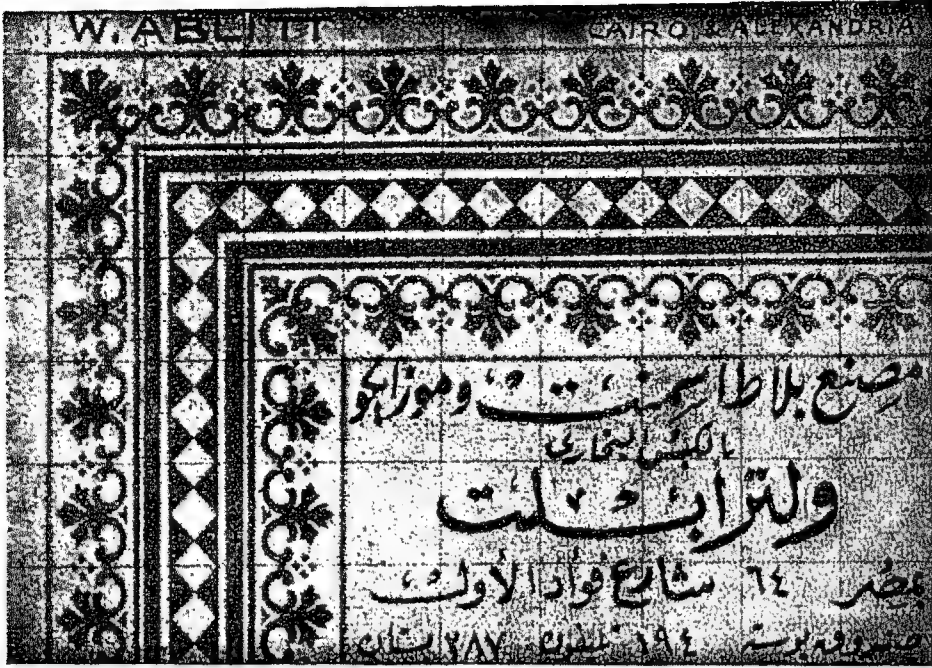 W. ABLITT CAIRO & ALEXANDRIA
مصنع بلاط اسمنت وموزايكو
بالكبس البخارى
ولتر ابلت
بمصر ٦٤ شارع فؤاد الأول
صندوق بوستة ١٩٤ تلفون ٢٨٧